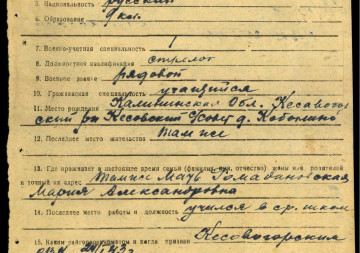 5. Национальность русский
6. Образование 9 кл.
7. Военно-учетная специальность 1
8. Должностная квалификация стрелок
9. Военное звание рядовой
10. Гражданская специальность учащийся
11. Место рождения Калининская Обл. Кесовогор
ский рн Кесовский с/совет д.
12. Последнее место жительства Там же
13. Где проживает в настоящее время семья (фамилия, имя, отчество) жены или родителей
и точный их адрес Там же Мать
Мария Александровна
14. Последнее место работы и должность учился в ср. школ
15. Каким райвоенкоматом и когда призван Кесовогорским
РВК